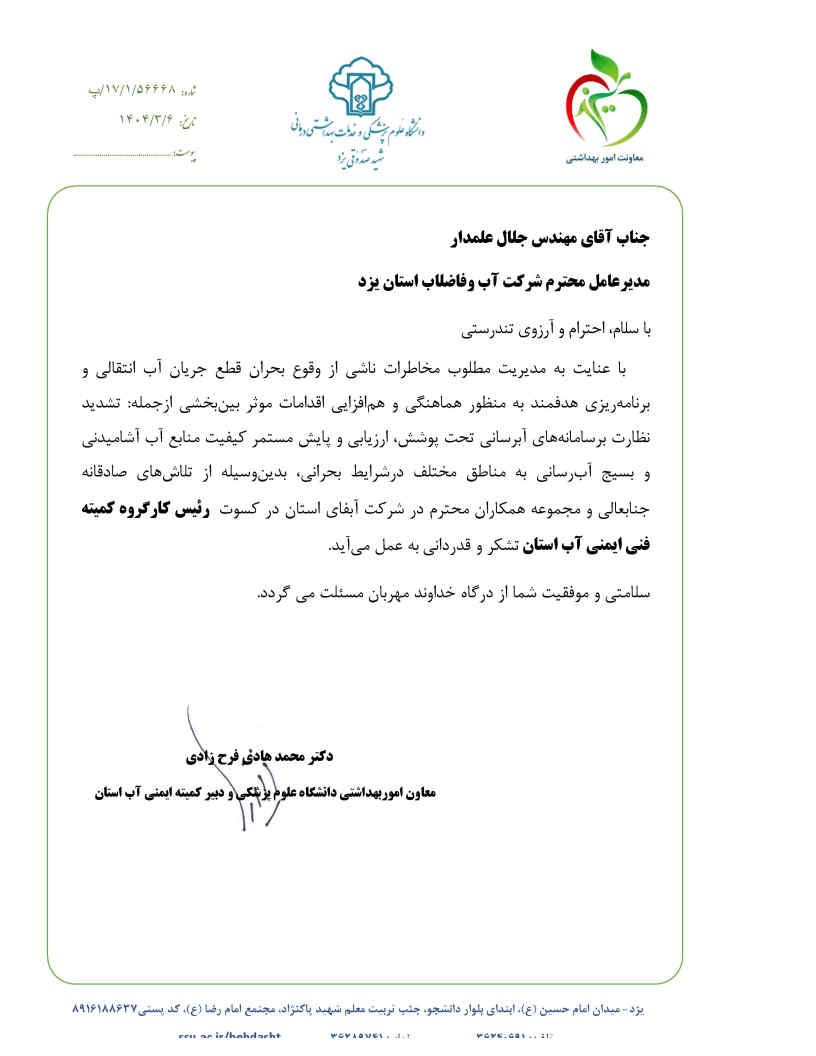 شماره: ۱۷/۱/۵۶۶۶۸/پ
تاریخ: ۱۴۰۴/۳/۶
پیوست:
دانشگاه علوم پزشکی و خدمات بهداشتی درمانی
شهید صدوقی یزد
معاونت امور بهداشتی
جناب آقای مهندس جلال علمدار
مدیرعامل محترم شرکت آب وفاضلاب استان یزد
با سلام، احترام و آرزوی تندرستی
با عنایت به مدیریت مطلوب مخاطرات ناشی از وقوع بحران قطع جریان آب انتقالی و
برنامه‌ریزی هدفمند به منظور هماهنگی و هم‌افزایی اقدامات موثر بین‌بخشی ازجمله: تشدید
نظارت برسامانه‌های آبرسانی تحت پوشش، ارزیابی و پایش مستمر کیفیت منابع آب آشامیدنی
و بسیج آب‌رسانی به مناطق مختلف درشرایط بحرانی، بدین‌وسیله از تلاش‌های صادقانه
جنابعالی و مجموعه همکاران محترم در شرکت آبفای استان در کسوت رئیس کارگروه کمیته
فنی ایمنی آب استان تشکر و قدردانی به عمل می‌آید.
سلامتی و موفقیت شما از درگاه خداوند مهربان مسئلت می گردد.
دکتر محمد هادی فرح زادی
معاون اموربهداشتی دانشگاه علوم پزشکی و دبیر کمیته ایمنی آب استان
یزد - میدان امام حسین (ع)، ابتدای بلوار دانشجو، جنب تربیت معلم شهید پاکنژاد، مجتمع امام رضا (ع)، کد پستی ۸۹۱۶۱۸۸۶۳۷